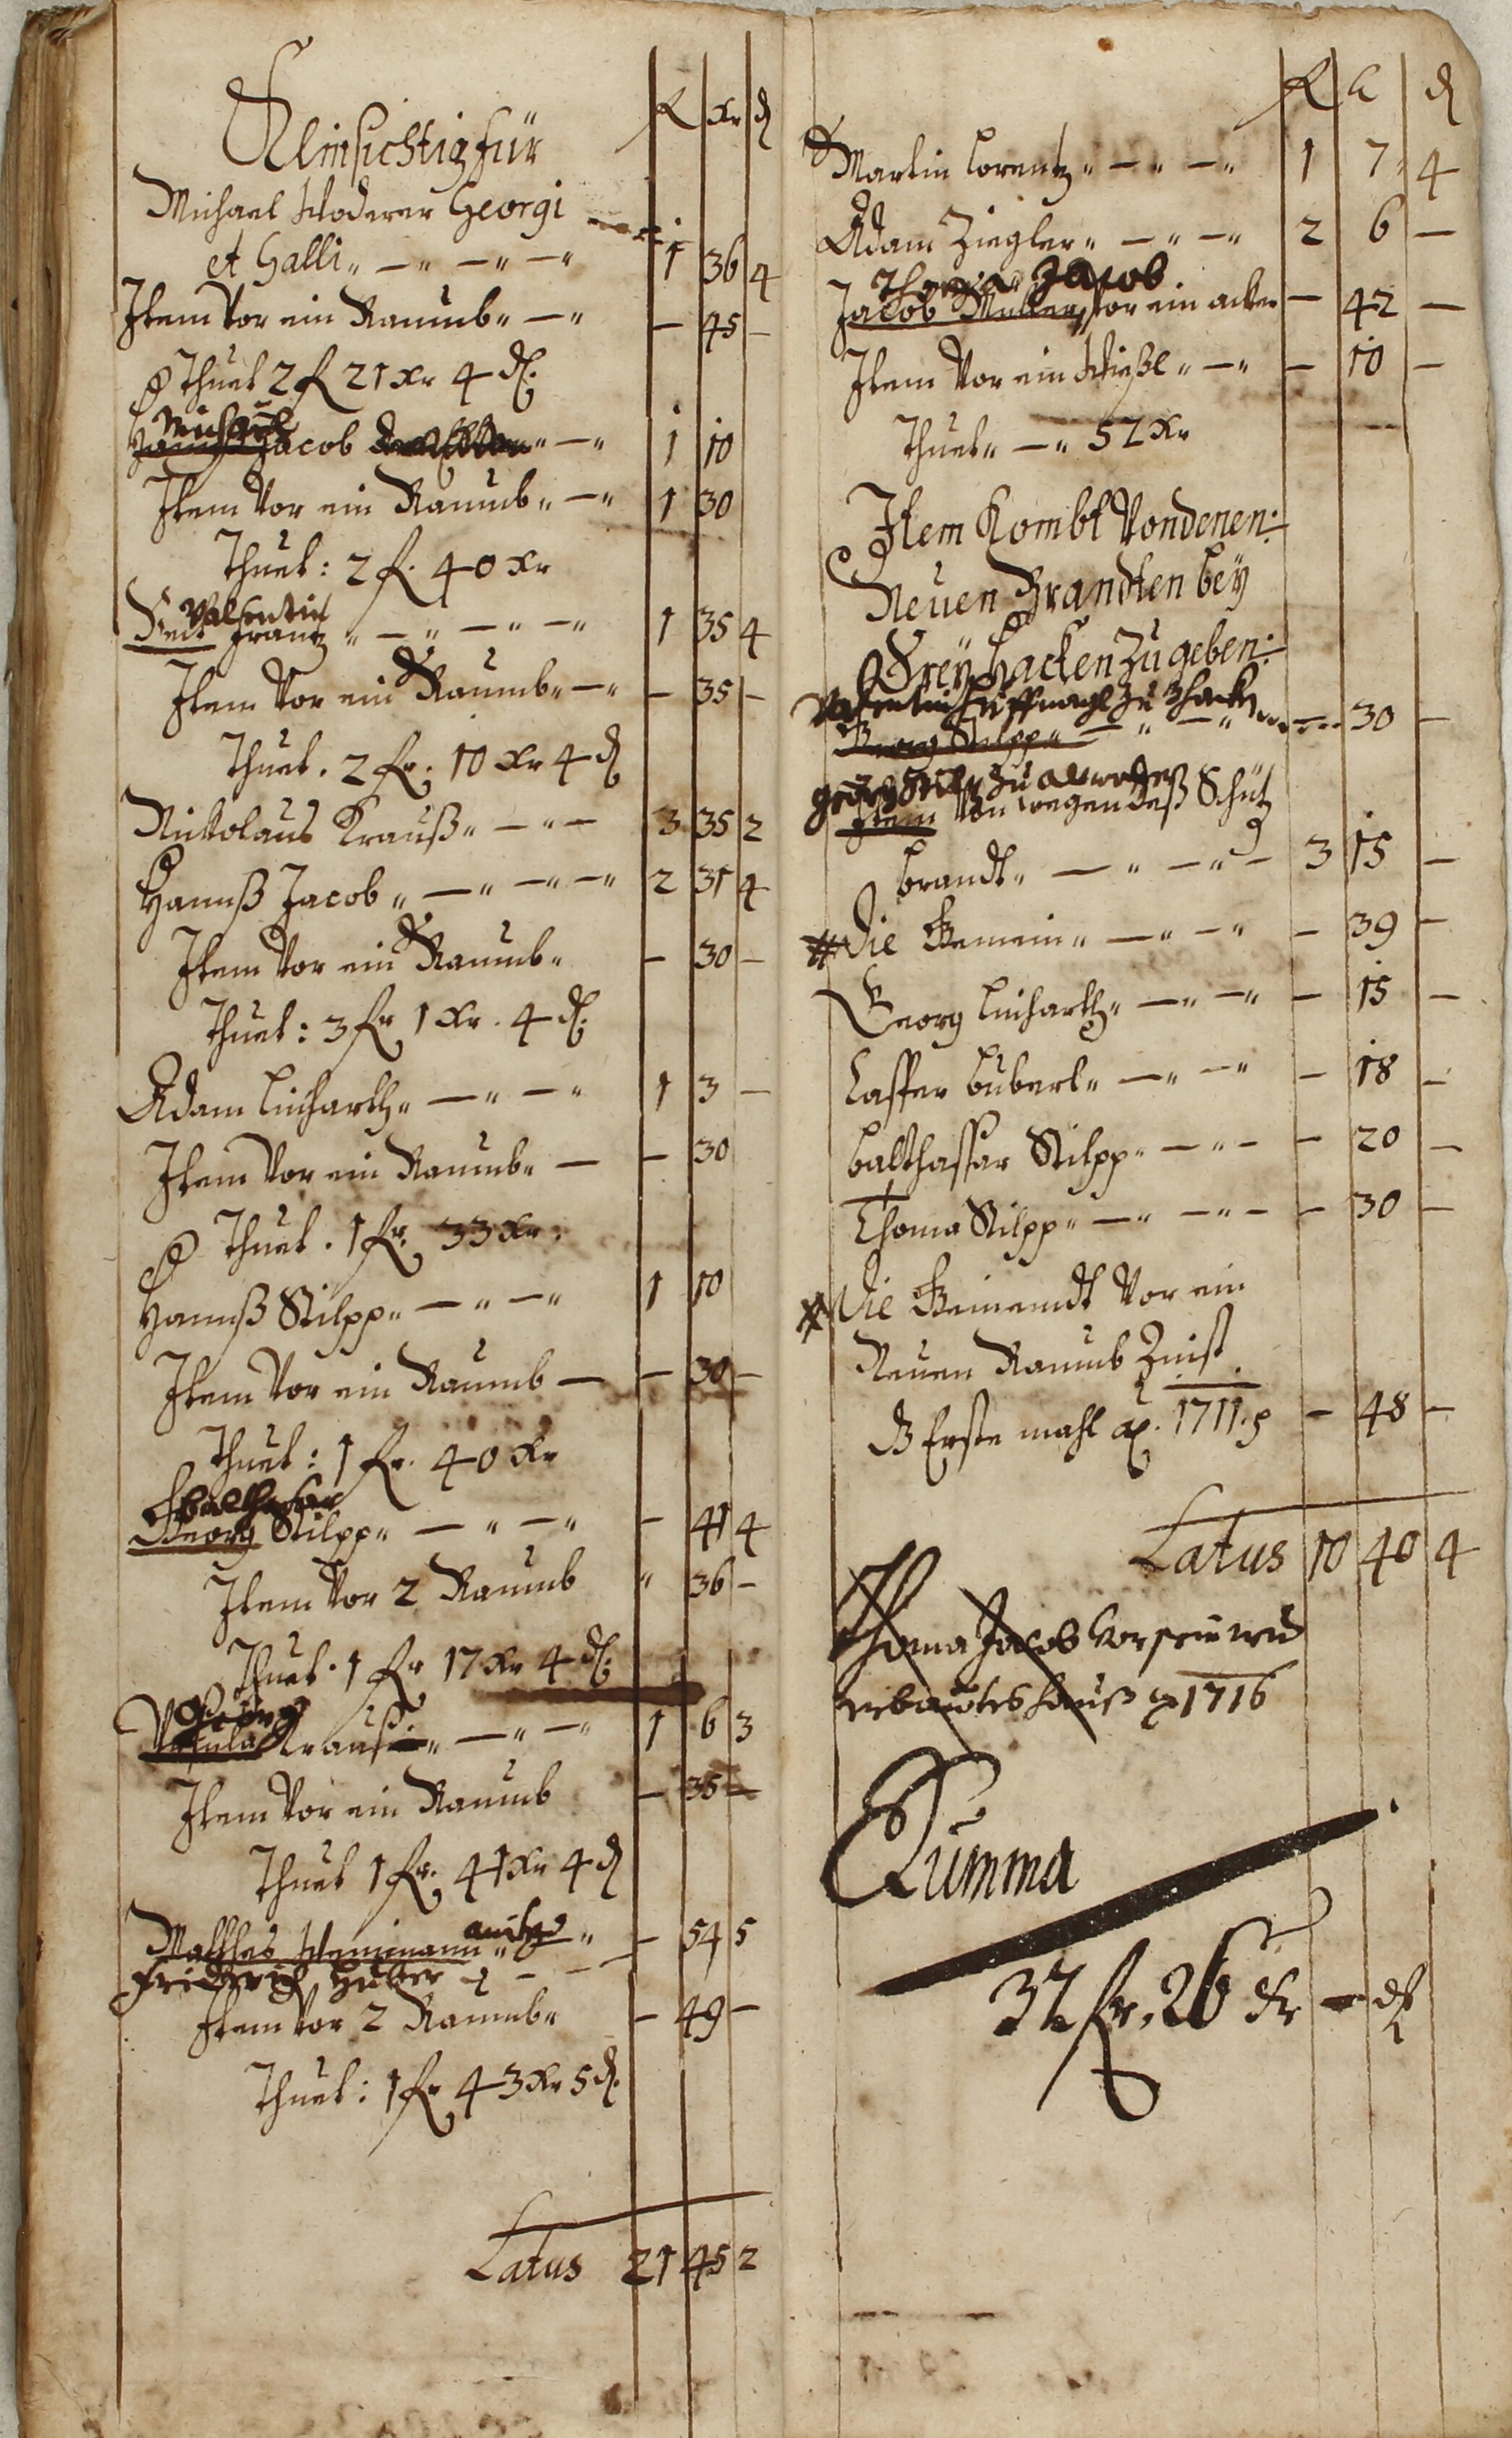 fl xr d
Michael Georgi
et Galli 1 36 4
Item Vor ein Raumb - 45 -
Thuet 2 fl 21 xr 4 d.
Michael
Hannß Jacob 1 10
Item Vor ein Raumb 1 30
Thuet: 2 fl. 40 xr
Valentin
Veit Frantz 1 35 4
Item Vor ein Raumb - 35 -
Thuet. 2 fl. 10 xr 4 d
Nickolaus Krauß 3 35 2
Hannß Jacob 2 31 4
Item Vor ein Raumb - 30 -
Thuet: 3 fl 1 xr. 4 d.
Adam Linharth 1 3 -
Item Vor ein Raumb - 30
Thuet. 1 fl. 33 xr.
Hannß Stilpp 1 10
Item Vor ein Raumb - 30 -
Thuet: 1 fl. 40 xr
Balthasar
Georg Stilpp - 41 4
Item Vor 2 Raumb " 36 -
Thuet. 1 fl 17 xr 4 d.
Georg
Ursula Krauß 1 6 3
Item Vor ein Raumb - 35 -
Thuet 1 fl. 41 xr 4 d
Mathes - 54 5
Friderich Huber
Item Vor 2 Raumb - 49 -
Thuet: 1 fl 43 xr 5 d.
Latus 21 45 2
fl x d
Martin Lorentz 1 7 4
Adam Ziegler 2 6 -
Thoma Jacob
Jacob Müller, Vor ein acker - 42 -
Item Vor ein Wießl - 10 -
Thuet 52 xr
Item Kombt Vondenen
Neuen Brandten bey
Freyhacken Zu geben
Valentin Huffnagl zu
Georg Stilpp - 30 -
Georg zu
Item Von wegen deß Schütz
brandt 3 15 -
Die Gemein - 39 -
Georg Linharth - 15 -
Casper Buberl - 18 -
Balthassar Stilpp - 20 -
Thoma Stilpp - 30 -
Die Gemeindt Vor ein
Neuen Raumb Zinst
Erste mahl 1711 - 48 -
Latus 10 40 4
Thoma Jacob Vor sein neu
erbautes hauß 1716
Summa
32 fl. 26 xr - d